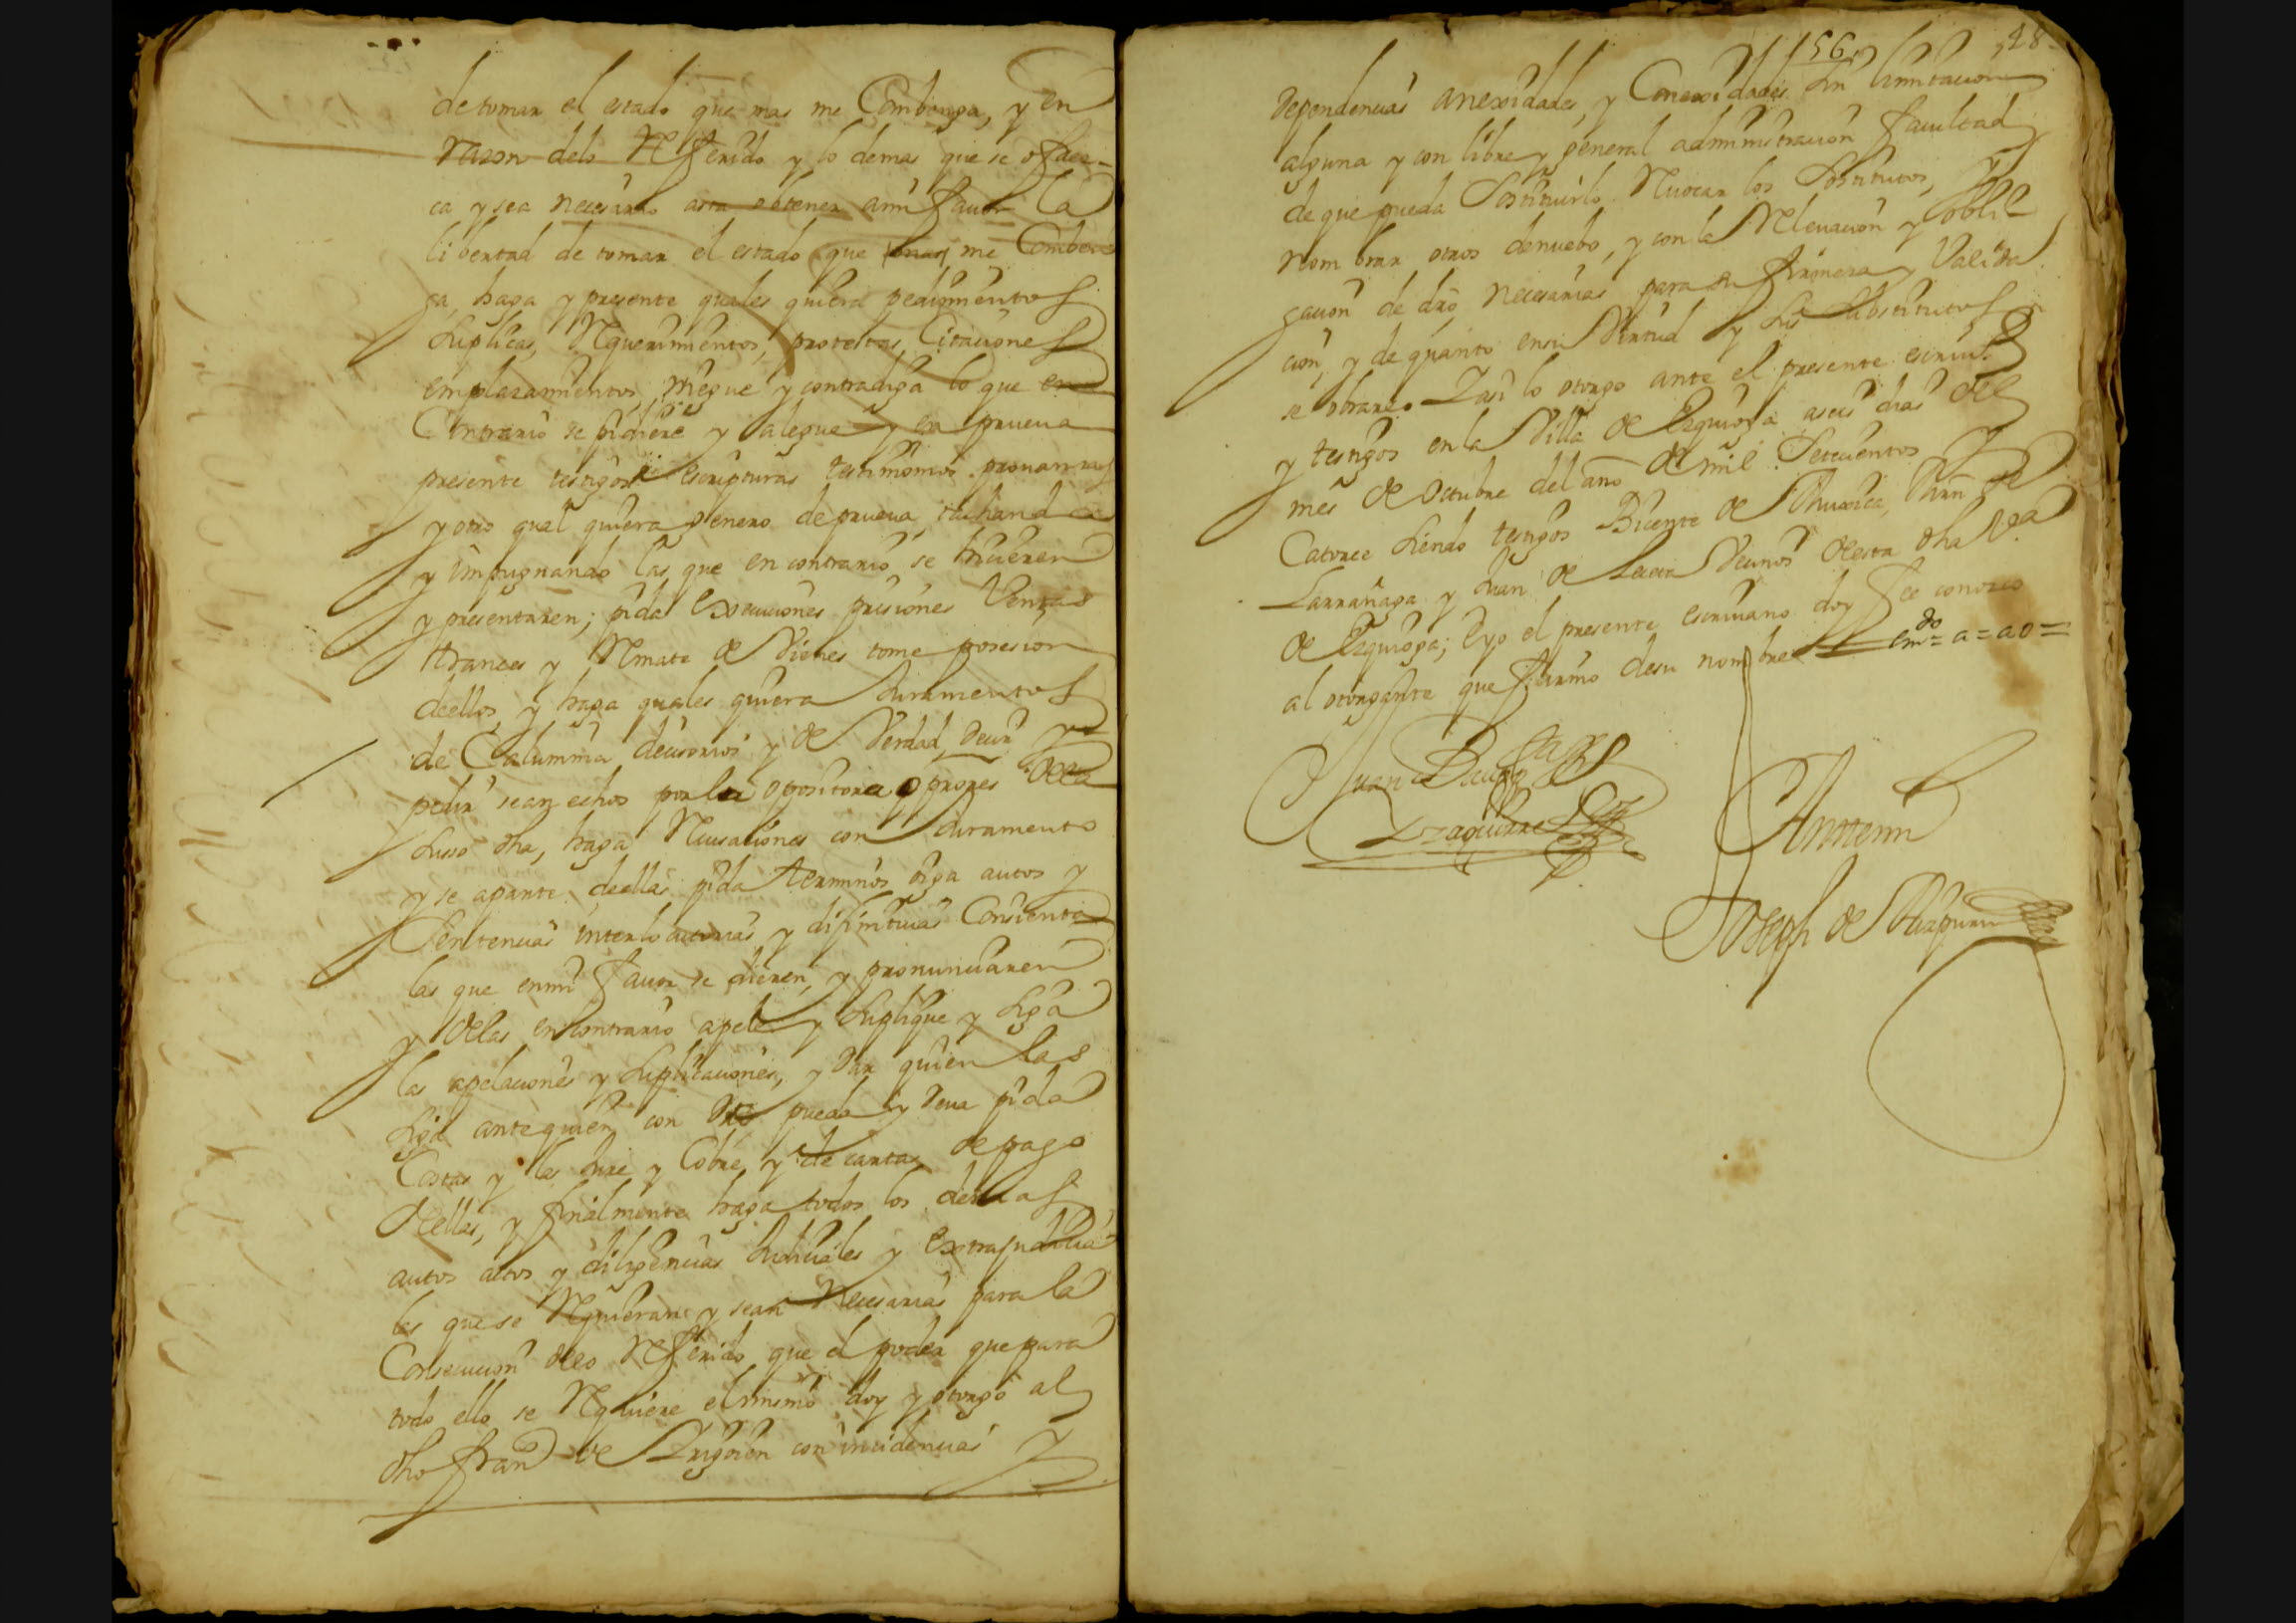 de tomar el estado que mas me Combenga, y en
razon delo Referido y lo demas que se ofrez-
ca y sea necesario asta obtener a mi fauor la
libertad de tomar el estado que mas me Comben
ga, haga y presente quales quiera pedimentos
suplicas, Requerimientos, protestas, Citaciones
emplazamientos, niegue y contradiga lo que en
Contrario se pidiere y alegue y en prueua
presente testigos escripturas testimonios prouanzas
y otro qual quiera genero de prueua, tachando
y impugnando las que en contrario se hicieren
y presentaren; pida execuciones prisiones Ventas
trances y Remate de Vienes tome posesion
deellos, y haga quales quiera Juramentos
de Calumnia decisorios y de Verdad, decir y
pedir sean echos por la opositora
suso dha, haga Recusaciones con Juramento
y se aparte deellas pida terminos oiga autos y
Sentencias interlocutorias y difinitiuas Consienta
las que en mi fauor se dieren, y pronunciaren
y delas en contrario apele y suplique y siga
las apelaciones y suplicaciones, y dar quien las
siga ante quien con dro pueda y deua pida
Costas y las Jure y Cobre, y de cartas de pago
dellas, y finalmente haga todos los demas
autos actos y diligencias Judiciales y extrajudicia
les que se Requieran y sean Necesarias para la
Consecucion delo Referido que el poder que para
todo ello se Requiere el mismo doy y otorgo al
dho fran.co de Irigoien con incidencias y
156 48
dependencias anexidades, y Conexidades sin limitacion
alguna y con libre y general administracion facultad
de que pueda Sostituirlo Reuocar los Sostitutos, y
nombrar otros denuebo, y con la Releuacion y obli
gacion de dro necesarias para su firmeza y Valida
cion, y de quanto en su Virtud y sus substitutos
se obrare Y asi lo otorgo ante el presente escriu.o
y testigos en la Villa de Ezquioga a seis dias del
mes de Octubre del año de mil Setecientos y
Catorce siendo testigos Bicente de
Larrañaga y Juan de Vecinos desta dha V.a
de Ezquioga; E yo el presente escriuano doy fee conozco
al otorgante que firmo de su nombre = em.do = a = a o =
Juan Baup.ta de
Yzaguirre
Ante mi
Joseph de